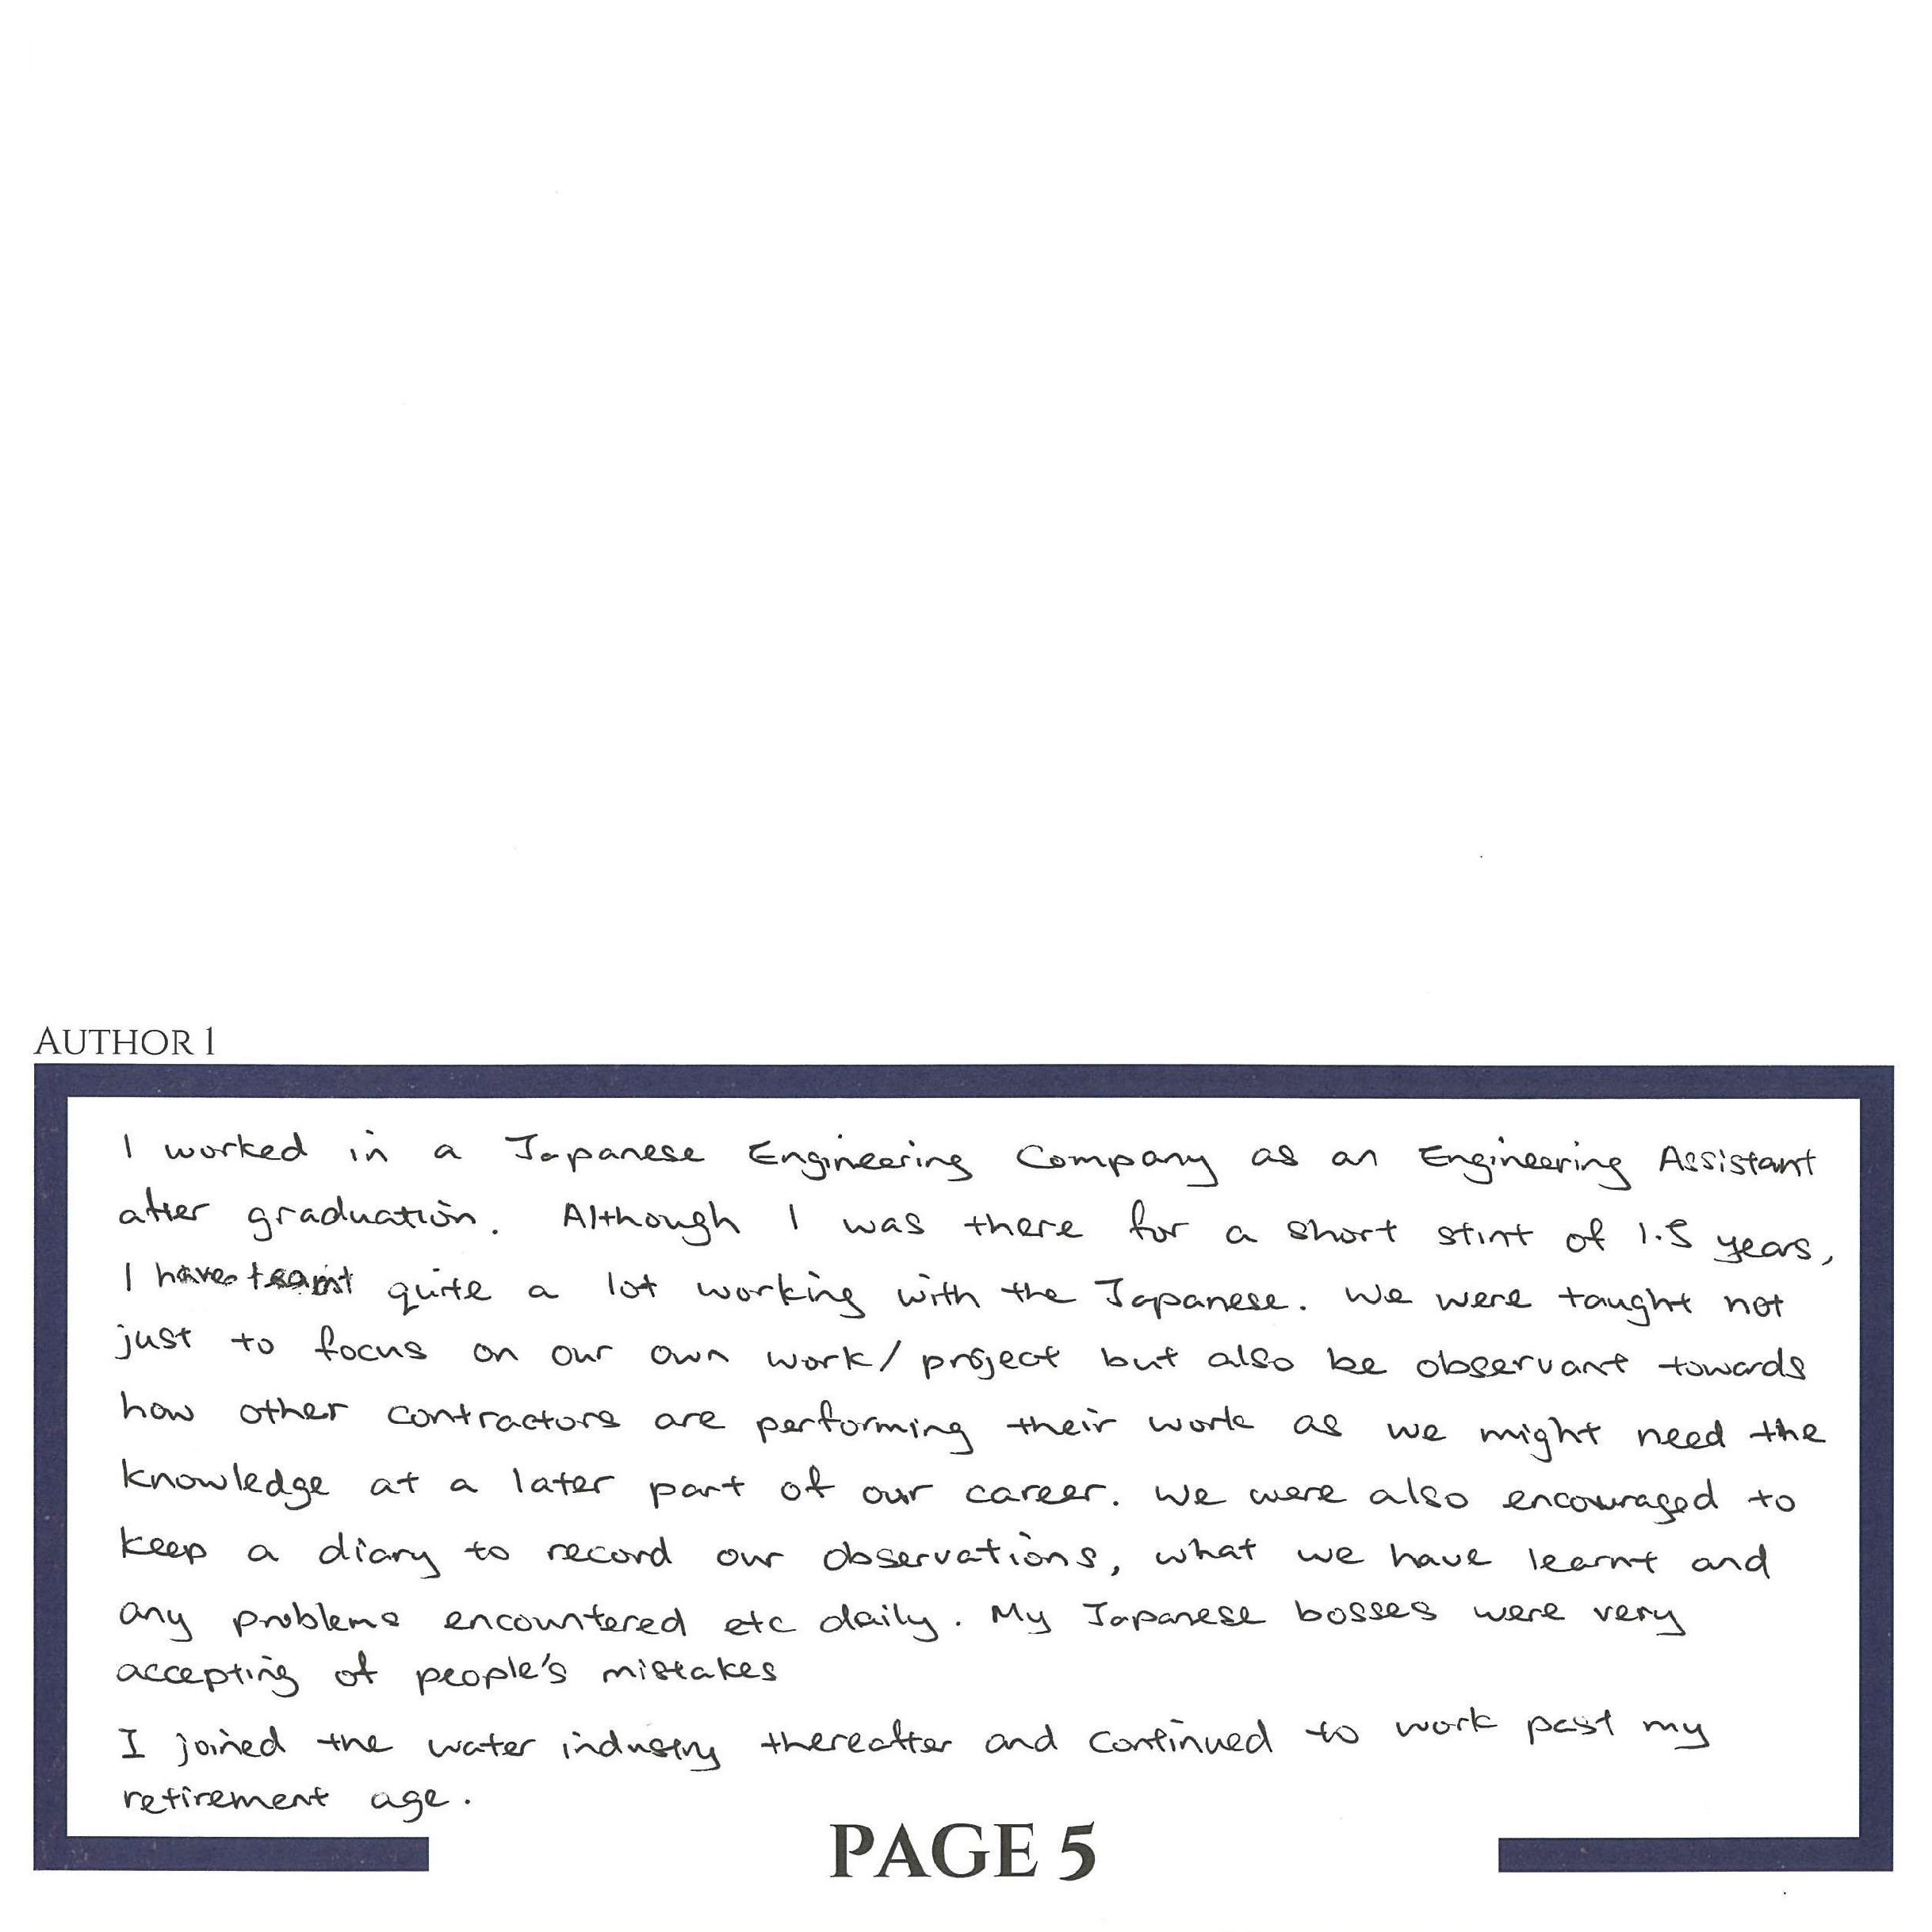 AUTHOR 1
I worked in a Japanese Engineering Company as an Engineering Assistant
after graduation. Although I was there for a short stint of 1.5 years,
I have learnt quite a lot working with the Japanese. We were taught not
just to focus on our own work/project but also be observant towards
how other contractors are performing their work as we might need the
knowledge at a later part of our career. We were also encouraged to
keep a diary to record our observations, what we have learnt and
any problems encountered etc daily. My Japanese bosses were very
accepting of people's mistakes
I joined the water industry thereafter and continued to work past my
retirement age.
PAGE 5